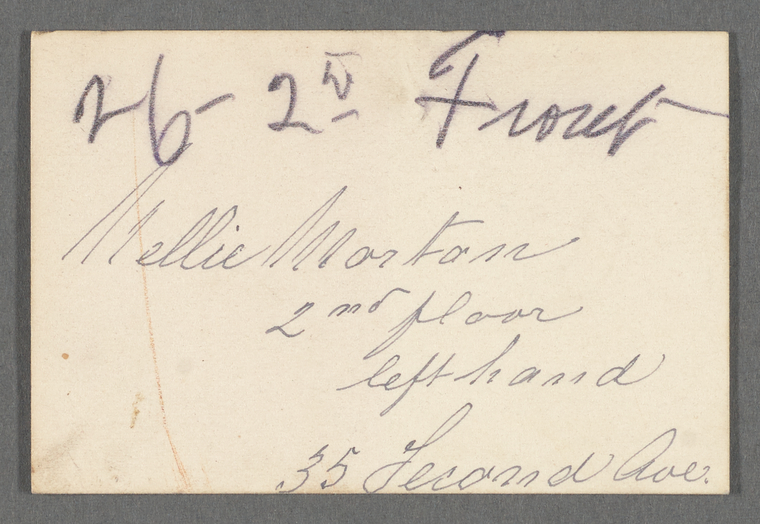 26- 2d Front
Nellie Morton
2nd floor
left hand
35 Second Ave.